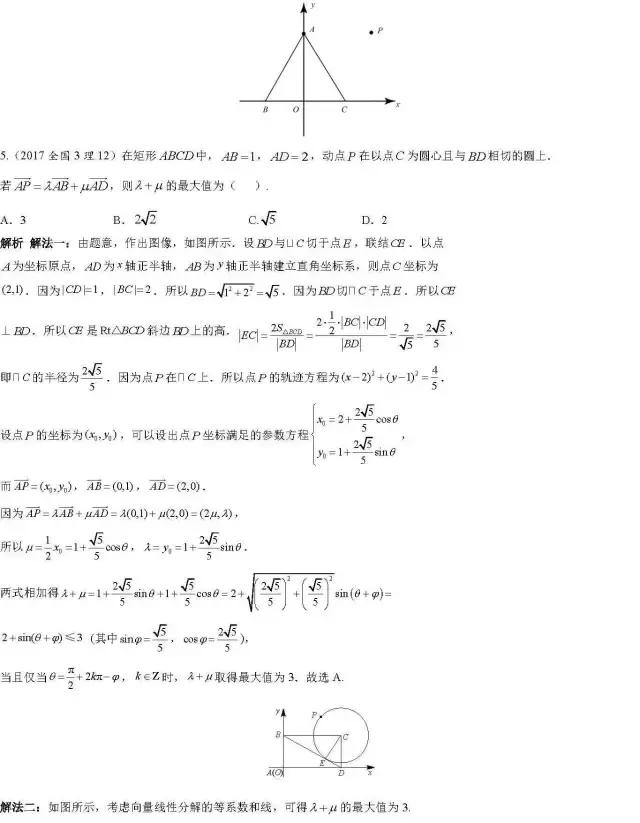 y
A
P
B
O
C
x
5.（2017 全国 3 理 12）在矩形 ABCD 中，AB=1，AD=2，动点 P 在以点 C 为圆心且与 BD 相切的圆上．
若 $\overrightarrow{AP}=\lambda\overrightarrow{AB}+\mu\overrightarrow{AD}$，则 λ+μ 的最大值为（　）．
A．3　B．2√2　C.√5　D．2
解析 解法一：由题意，作出图像，如图所示．设 BD 与⊔ C 切于点 E，联结 CE．以点
A 为坐标原点，AD 为 x 轴正半轴，AB 为 y 轴正半轴建立直角坐标系，则点 C 坐标为
(2,1)．因为 |CD|=1，|BC|=2．所以 $BD=\sqrt{1^2+2^2}=\sqrt{5}$．因为 BD 切⊓ C 于点 E．所以 CE
⊥ BD．所以 CE 是 Rt△BCD 斜边 BD 上的高．$|EC|=\frac{2S_{\triangle BCD}}{|BD|}=\frac{2\cdot\frac{1}{2}\cdot|BC|\cdot|CD|}{|BD|}=\frac{2}{\sqrt{5}}=\frac{2\sqrt{5}}{5}$，
即⊓ C 的半径为 $\frac{2\sqrt{5}}{5}$．因为点 P 在⊓ C 上．所以点 P 的轨迹方程为 $(x-2)^2+(y-1)^2=\frac{4}{5}$．
设点 P 的坐标为 $(x_0,y_0)$，可以设出点 P 坐标满足的参数方程 $\begin{cases}x_0=2+\frac{2\sqrt{5}}{5}\cos\theta\\y_0=1+\frac{2\sqrt{5}}{5}\sin\theta\end{cases}$，
而 $\overrightarrow{AP}=(x_0,y_0)$，$\overrightarrow{AB}=(0,1)$，$\overrightarrow{AD}=(2,0)$．
因为 $\overrightarrow{AP}=\lambda\overrightarrow{AB}+\mu\overrightarrow{AD}=\lambda(0,1)+\mu(2,0)=(2\mu,\lambda)$，
所以 $\mu=\frac{1}{2}x_0=1+\frac{\sqrt{5}}{5}\cos\theta$，$\lambda=y_0=1+\frac{2\sqrt{5}}{5}\sin\theta$．
两式相加得 $\lambda+\mu=1+\frac{2\sqrt{5}}{5}\sin\theta+1+\frac{\sqrt{5}}{5}\cos\theta=2+\sqrt{\left(\frac{2\sqrt{5}}{5}\right)^2+\left(\frac{\sqrt{5}}{5}\right)^2}\sin(\theta+\varphi)=$
$2+\sin(\theta+\varphi)\leqslant 3$ (其中 $\sin\varphi=\frac{\sqrt{5}}{5}$，$\cos\varphi=\frac{2\sqrt{5}}{5}$)，
当且仅当 $\theta=\frac{\pi}{2}+2k\pi-\varphi$，$k\in\mathbf{Z}$ 时，λ+μ 取得最大值为 3．故选 A.
y
P
B
C
E
A(O)
D
x
解法二：如图所示，考虑向量线性分解的等系数和线，可得 λ+μ 的最大值为 3.